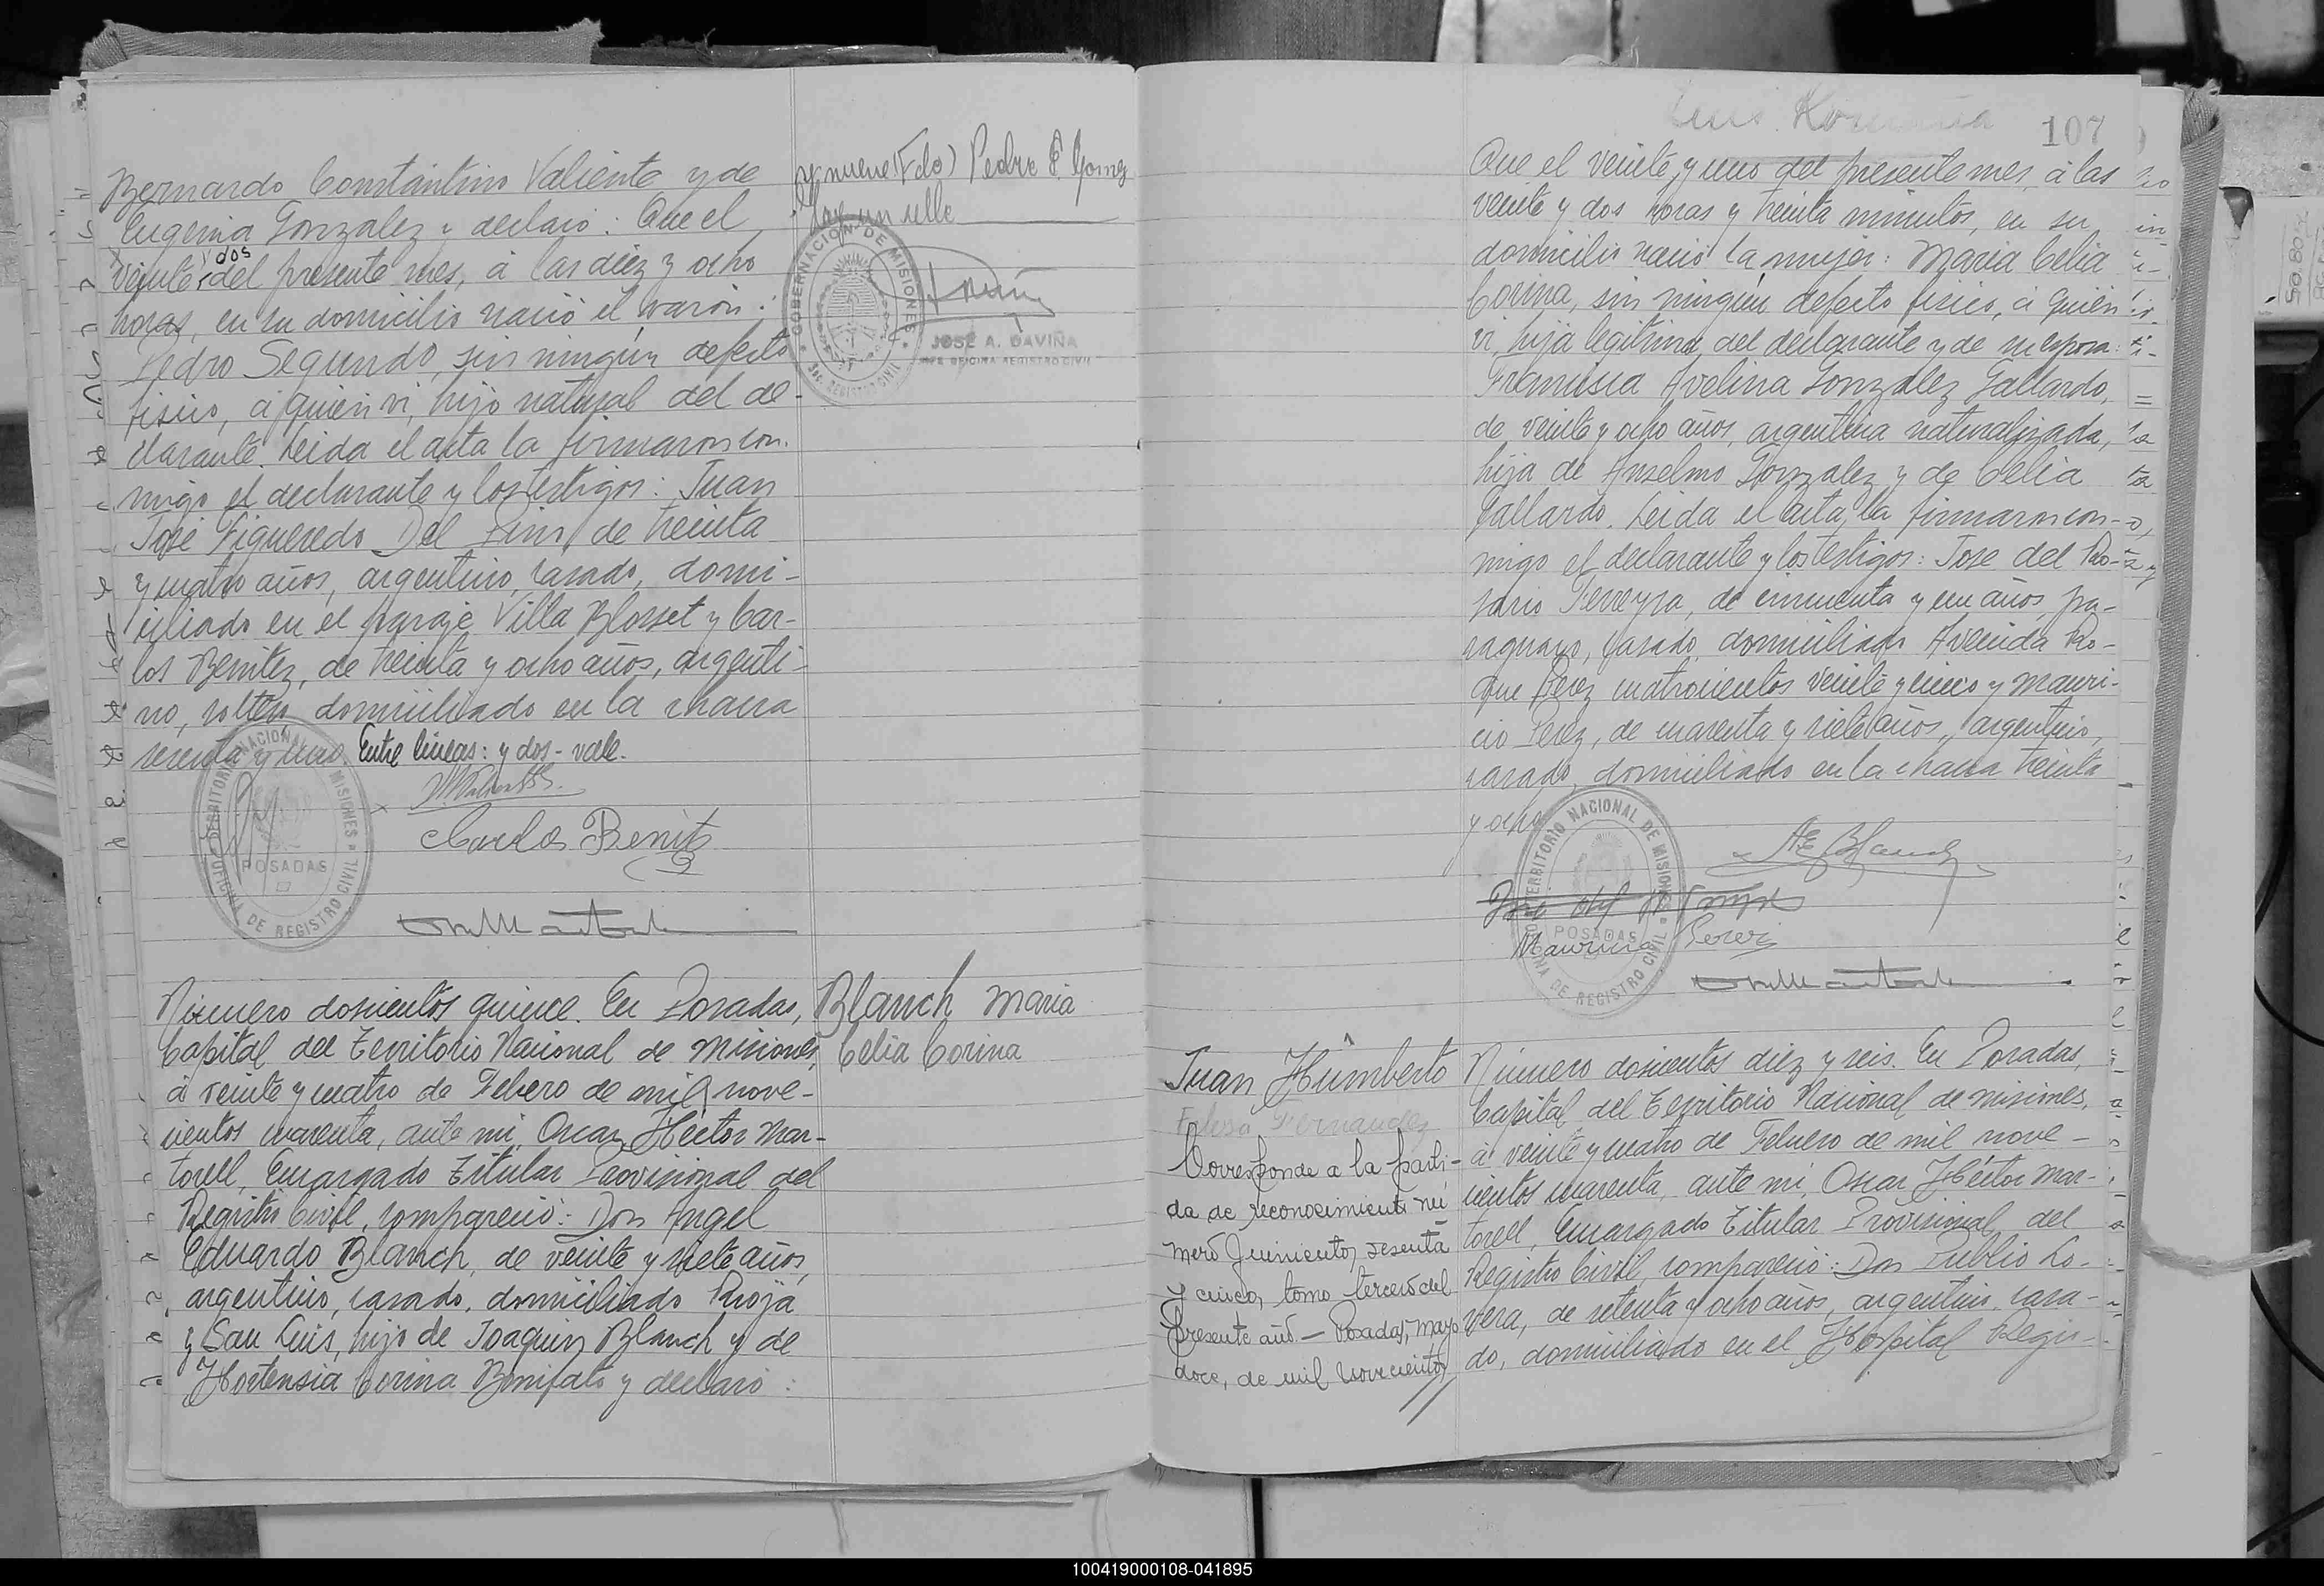 Bernardo Constantino Valiente y de
Eugenia Gonzalez y declaró: Que el
veinte y dos del presente mes, á las diez y ocho
horas, en su domicilio nació el varón:
Pedro Segundo, sin ningún defecto
físico, á quien vi, hijo natural del de-
clarante. Leida el acta la firmaron con-
migo el declarante y los testigos: Juan
José Figueredo Del Pino, de treinta
y cuatro años, argentino, casado, domi-
ciliado en el paraje Villa Blosset y Car-
los Benitez, de treinta y ocho años, argenti-
no, soltero, domiciliado en la chacra
sesenta y uno. Entre lineas: y dos - vale.
Carlos Benitez
TERRITORIO NACIONAL DE MISIONES
POSADAS
OFICINA DE REGISTRO CIVIL
y nueve (Fdo) Pedro E. Gomez
Hay un sello
GOBERNACION DE MISIONES
REGISTRO CIVIL
JOSÉ A. GAVIÑA
JEFE OFICINA REGISTRO CIVIL
Número doscientos quince. En Posadas,
Capital del Territorio Nacional de Misiones,
á veinte y cuatro de Febrero de mil nove-
cientos cuarenta, ante mi, Oscar Héctor Mar-
torell, Encargado Titular Provisional del
Registro Civil, compareció: Don Angel
Eduardo Blanch, de veinte y siete años,
argentino, casado, domiciliado Rioja
y San Luis, hijo de Joaquin Blanch y de
Hortensia Corina Bonifato y declaró:
Blanch Maria
Celia Corina
107
Que el veinte y uno del presente mes, á las
veinte y dos horas y treinta minutos, en su
domicilio nació la mujer: Maria Celia
Corina, sin ningún defecto físico, á quien
vi, hija legítima del declarante y de su esposa:
Francisca Avelina Gonzalez Gallardo,
de veinte y ocho años, argentina naturalizada,
hija de Anselmo Gonzalez y de Celia
Gallardo. Leida el acta, la firmaron con-
migo el declarante y los testigos: Jose del Ro-
sario Ferreyra, de cincuenta y un años, pa-
raguayo, casado, domiciliado Avenida Ro-
que Perez cuatrocientos veinte y cinco y Mauri-
cio Perez, de cuarenta y siete años, argentino,
casado, domiciliado en la chacra treinta
y ocho
AE Blanch
Mauricio Perez
TERRITORIO NACIONAL DE MISIONES
POSADAS
OFICINA DE REGISTRO CIVIL
Juan Humberto
Fernandez
Corresponde a la parti-
da de reconocimiento nú
mero quinientos sesenta
y cinco, tomo tercero del
presente año - Posadas, mayo
doce, de mil novecientos
Número doscientos diez y seis. En Posadas,
Capital del Territorio Nacional de Misiones,
á veinte y cuatro de Febrero de mil nove-
cientos cuarenta, ante mi, Oscar Héctor Mar-
torell, Encargado Titular Provisional del
Registro Civil, compareció: Don Publio Lo-
vera, de setenta y ocho años, argentino, casa-
do, domiciliado en el Hospital Regio-
100419000108-041895